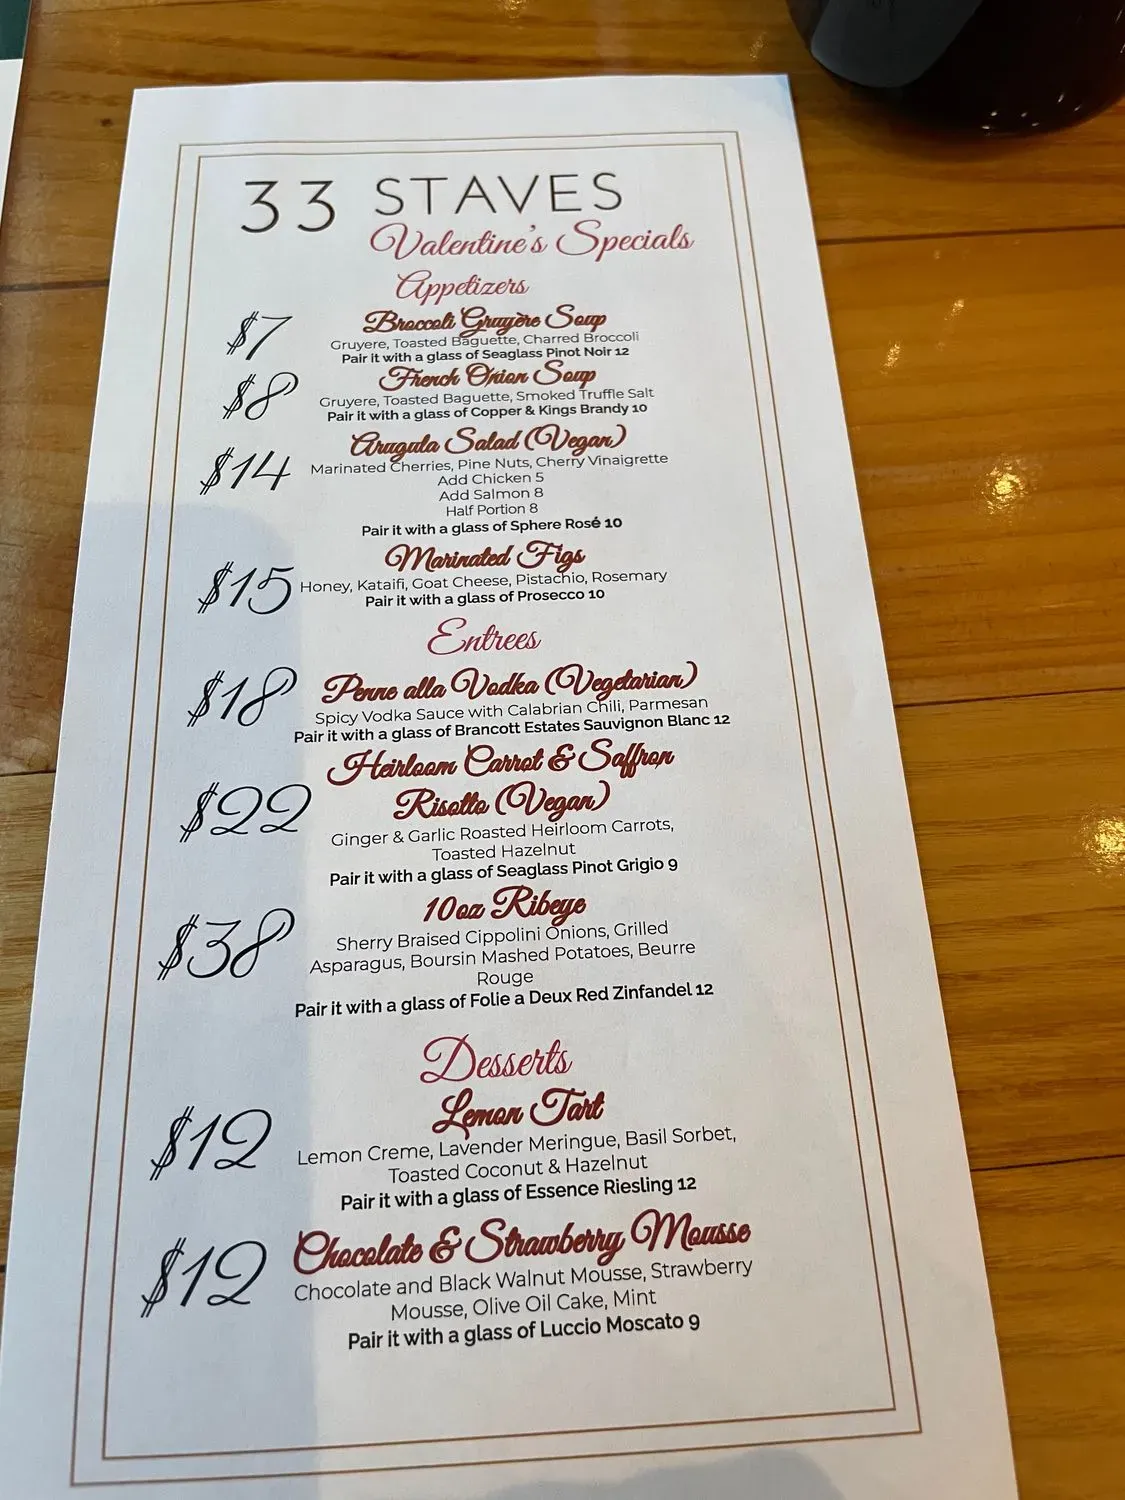 33 STAVES
Valentine's Specials
Appetizers
$7 Broccoli Gruyère Soup
Gruyere, Toasted Baguette, Charred Broccoli
Pair it with a glass of Seaglass Pinot Noir 12
$8 French Onion Soup
Gruyere, Toasted Baguette, Smoked Truffle Salt
Pair it with a glass of Copper & Kings Brandy 10
$14 Arugula Salad (Vegan)
Marinated Cherries, Pine Nuts, Cherry Vinaigrette
Add Chicken 5
Add Salmon 8
Half Portion 8
Pair it with a glass of Sphere Rosé 10
$15 Marinated Figs
Honey, Kataifi, Goat Cheese, Pistachio, Rosemary
Pair it with a glass of Prosecco 10
Entrees
$18 Penne alla Vodka (Vegetarian)
Spicy Vodka Sauce with Calabrian Chili, Parmesan
Pair it with a glass of Brancott Estates Sauvignon Blanc 12
Heirloom Carrot & Saffron
$22 Risotto (Vegan)
Ginger & Garlic Roasted Heirloom Carrots,
Toasted Hazelnut
Pair it with a glass of Seaglass Pinot Grigio 9
10oz Ribeye
$38 Sherry Braised Cippolini Onions, Grilled
Asparagus, Boursin Mashed Potatoes, Beurre
Rouge
Pair it with a glass of Folie a Deux Red Zinfandel 12
Desserts
Lemon Tart
$12 Lemon Creme, Lavender Meringue, Basil Sorbet,
Toasted Coconut & Hazelnut
Pair it with a glass of Essence Riesling 12
Chocolate & Strawberry Mousse
$12 Chocolate and Black Walnut Mousse, Strawberry
Mousse, Olive Oil Cake, Mint
Pair it with a glass of Luccio Moscato 9